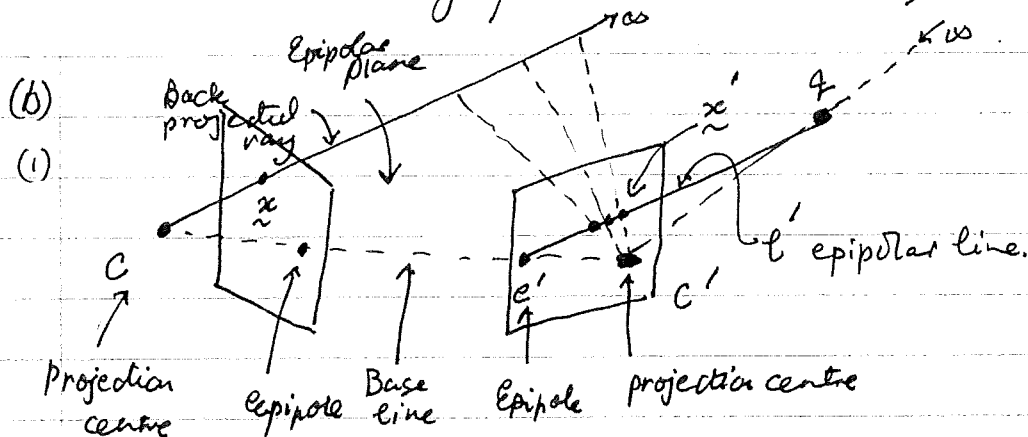 ∞
∞
Epipolar
Plane
(b)
Back
projected
ray
q
x'
(i)
x
l' epipolar line.
C
e'
C'
Projection
centre
epipole
Base
line
Epipole
projection centre